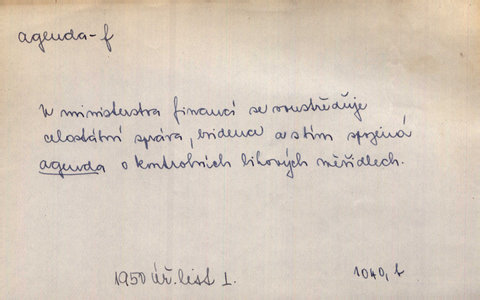 agenda-f
U ministerstva financí se soustřeďuje
celostátní správa, evidence a s tím spojená
agenda o kontrolních lihových měřidlech.
1950 úř. list I.
1040, 1